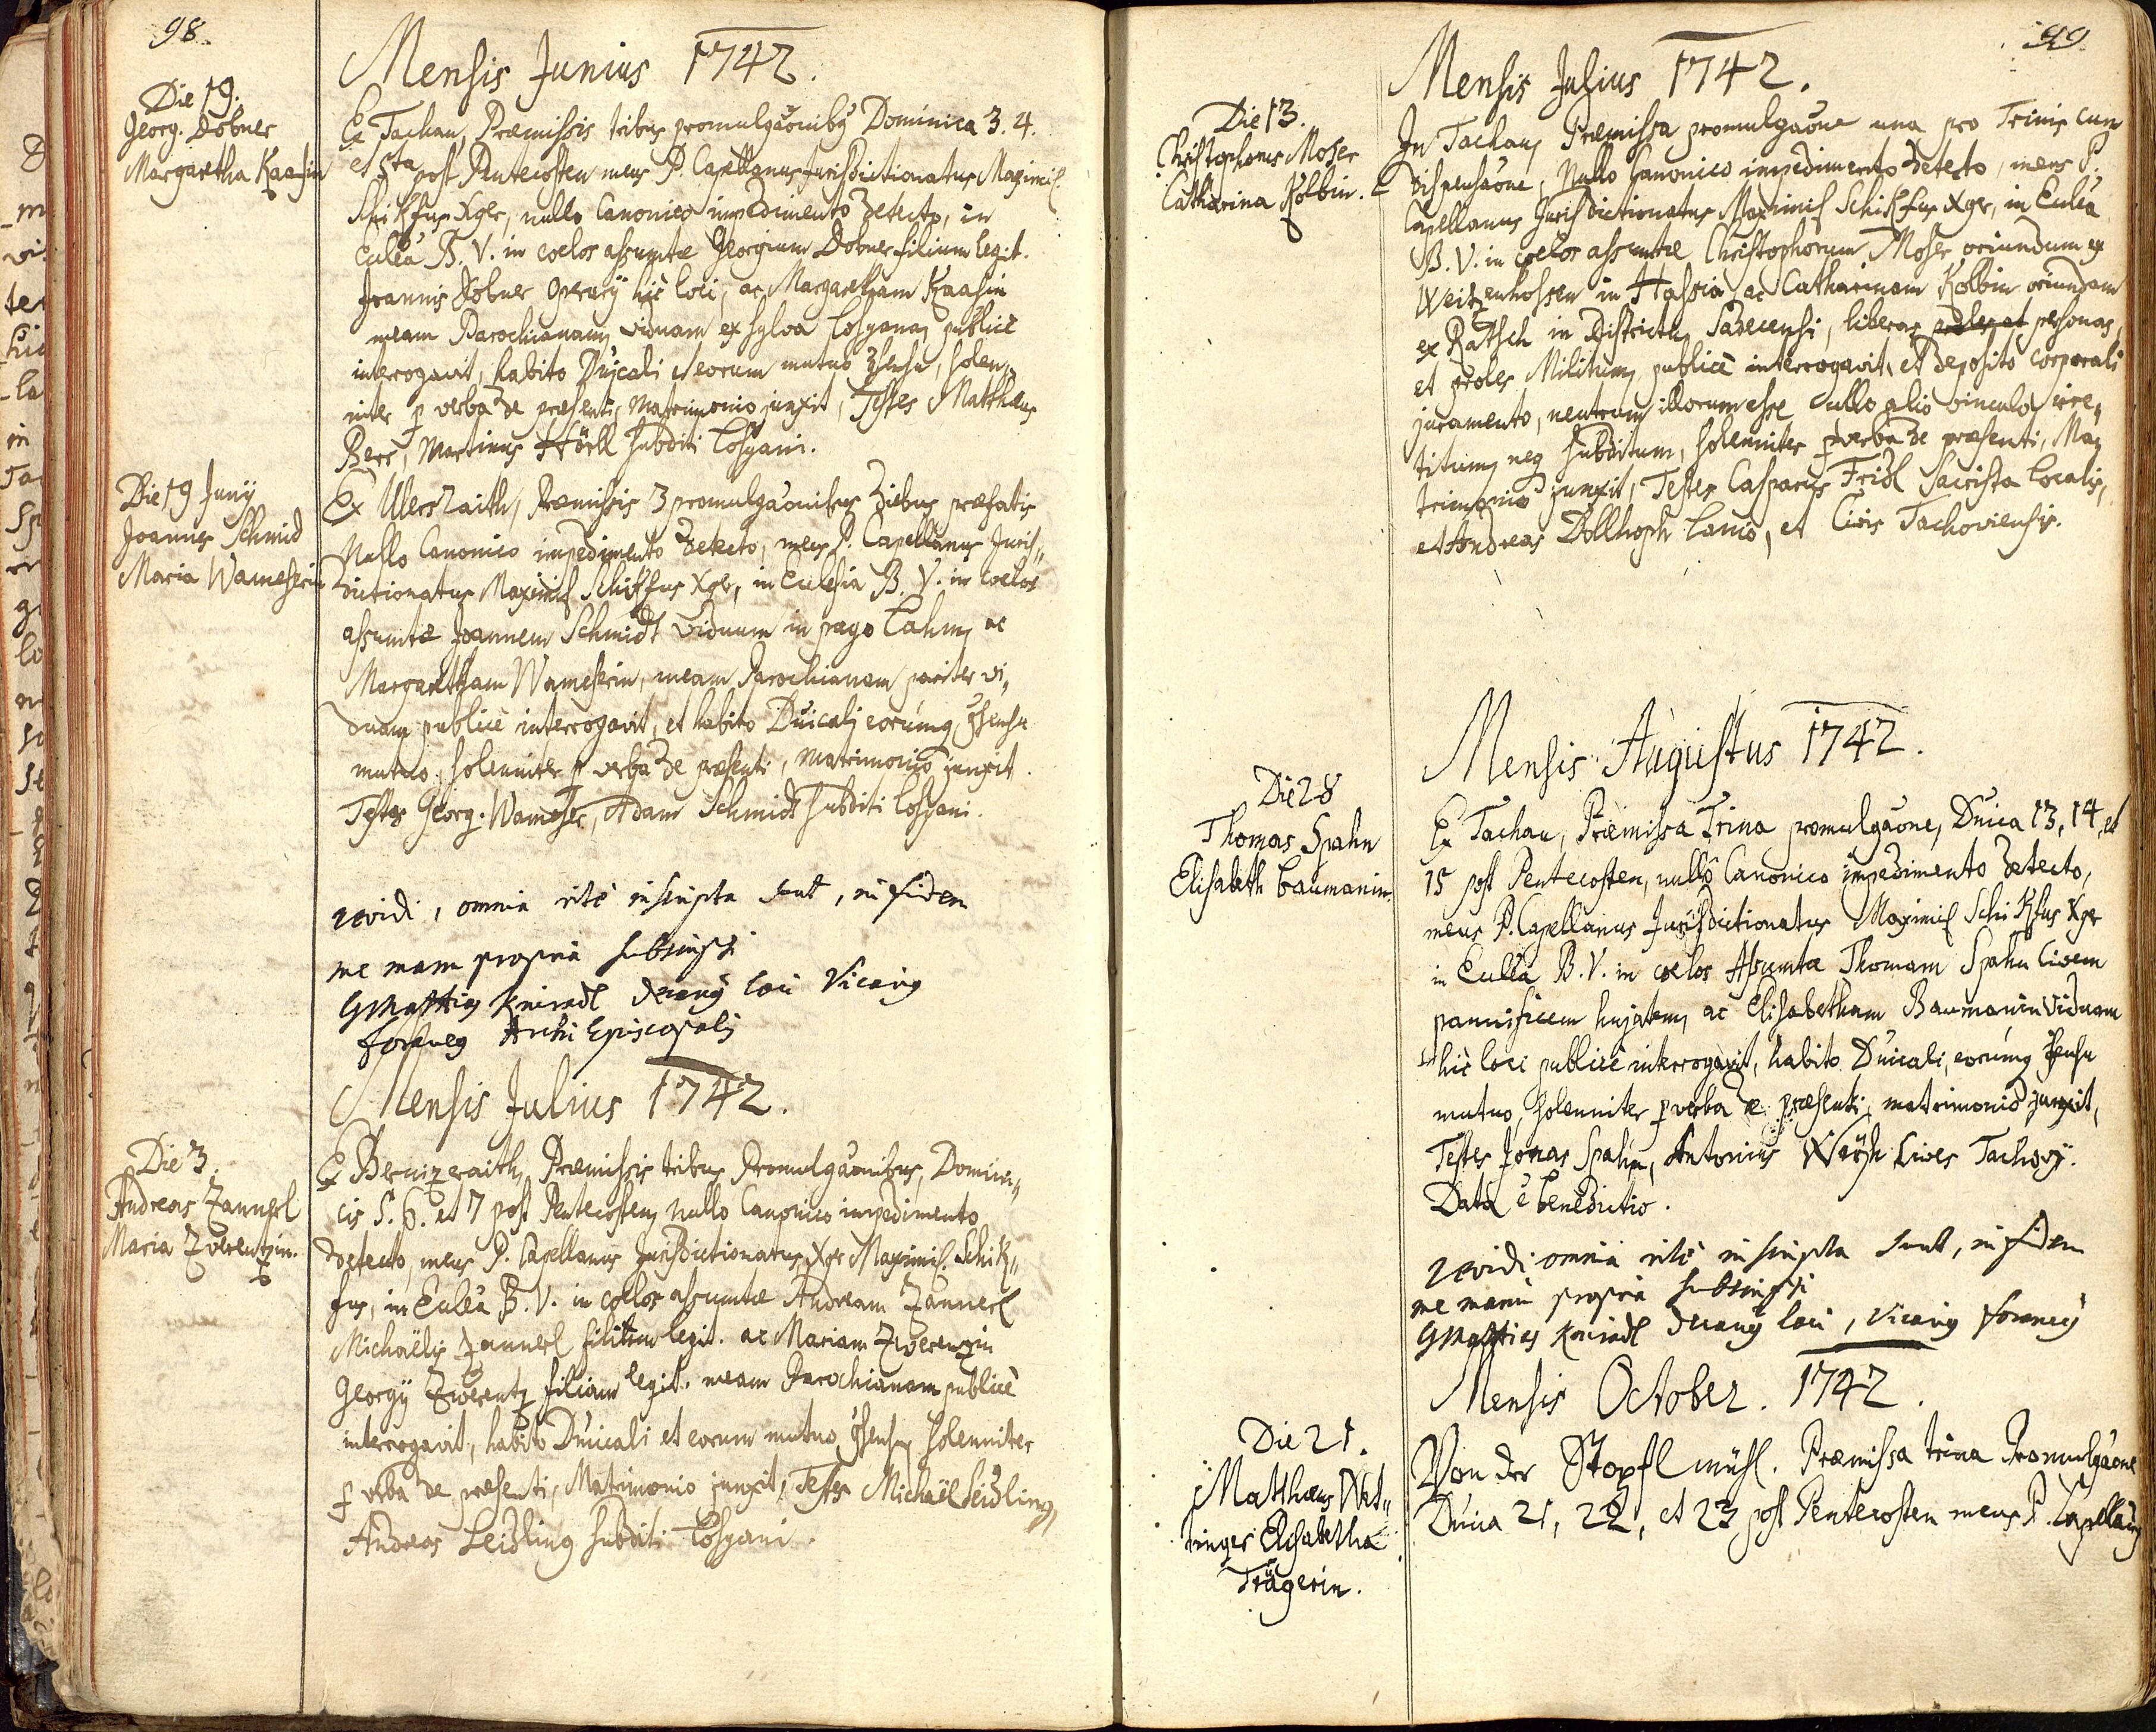 98.
Mensis Junius 1742.
Die 19.
Georg. Dobner
Margaretha Kaasin
Ex Tachau, Præmissis tribus promulgaonibus Dominica 3. 4.
et 5ta post Pentecosten meus P. Capellanus Jurisdictionatus Maximil
Schikfus Xgr, nullo Canonico impedimento detecto, in
Eulea B. V. in coelos assumtæ Georgium Dobner filium legit.
Joannis Dobner operarij hic loci, ac Margaretham Kaasin
meam Parochianam viduam ex sylva Losyana, publicè
interrogavit, habito Duicali et eorum mutuo 9sensu, solen„
niter p verba de præsenti, Matrimonio junxit, Testes Matthæus
Beer, Martinus Hörll subditi Losyani.
Die 19 Junij
Joannes Schmid
Maria Wameserin
Ex Ulersraith, Præmissis 3 promulgaonibus diebus præfatis
Nullo Canonico impedimento detecto, meus P. Capellanus Juris„
dictionatus Maximil Schikfus Xgr, in Eulesia B. V. in coelos
assumtæ Joannem Schmidt viduum in pago Lahm, ac
Margaretham Wameserin, meam Parochianam pariter vi„
duam publicè interrogavit, et habito Duicali eorumq 9sensu
mutuo, solenniter p verba de præsenti, Matrimonio junxit.
Testes Georg. Wameser, Adam Schmidt subditi Losyani.
revidi, omnia ritè inscripta sunt, in fidem
me manu propria subscripsi
GMatthias Kniradl decanus loci Vicarius
foraneus Archi Episcopalis
Mensis Julius 1742.
Die 3.
Andreas Zannerl
Maria Zverentzin.
Ex Bernezraith, Præmissis tribus Promulgaonibus, Domini„
cis 5. 6. et 7 post Pentecosten, nullo Canonico impedimento
detecto, meus P. Capellanus Jurisdictionatus, Xgr Maximil. Schik„
fus, in Eulea B. V. in coelos assumtæ Andream Zannerl
Michaëlis Zannerl filium legit. ac Mariam Zverenzin
Georgij Zwerentz filiam legit. meam Parochianam publicè
interrogavit, habito Duicali et eorum mutuo 9sensu, solenniter
p verba de præsenti, Matrimonio junxit, Testes Michaël Leidling,
Andreas Leidling subditi Losyani.
99
Mensis Julius 1742.
Die 13.
Christophorus Moser
Catharina Kolbin.
In Tachau, Præmissa promulgaone una pro Trinis cum
dispensaone, Nullo Canonico impedimento detecto, meus P.
Capellanus Jurisdictionatus Maximil Schikfus Xgr, in Eulea
B. V. in coelos assumtæ Christophorum Moser oriundum ex
Weitzenhossen in Hassia, ac Catharinam Kolbin oriundam
ex Ratsch in Districtu Sadecensi, liberas personas,
et proles Militum, publicè interrogavit, et deposito corporali
juramento, neutrum illorum esse ullo alio vinculo irre„
titum, neq subditum, solenniter p verba de præsenti, Ma„
trimonio junxit, Testes Casparus Fridl Sacrista localis,
et Andreas Dollhoph Lanio, et Civis Tachoviensis.
Mensis Augustus 1742.
Die 28
Thomas Spahn
Elisabeth Baumanin.
Ex Tachau, Præmissa Trina promulgaone, Duica 13, 14, et
15 post Pentecosten, nullo Canonico impedimento detecto,
meus P. Capellanus Jurisdictionatus Maximil Schikfus Xgr
in Eulla B. V. in coelos Assumtæ Thomam Spahn Civem
pannificem hujatem, ac Elisabetham Baumanin viduam
hic loci publicè interrogavit, habito Duicali, eorumq 9sensu
mutuo, solenniter p verba de præsenti, matrimonio junxit,
Testes Jonas Spahn, Antonius Cives Tachovij.
Data è benedictio.
revidi omnia ritè inscripta sunt, in fidem
me manu propria subscripsi
GMatthias Kniradl decanus loci, Vicarius foraneus
Mensis October. 1742.
Die 21.
Matthæus Wet„
tinger Elisabetha
Trägerin.
Von der Stopfl mühl. Præmissa trina Promulgaone
Duica 21, 22, et 23 post Pentecosten meus P. Capellanus